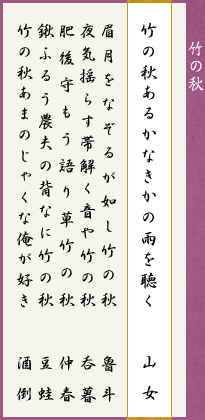 竹の秋
竹の秋あるかなきかの雨を聴く 山女
眉月をなぞるが如し竹の秋 魯斗
夜気揺らす帯解く音や竹の秋 呑暮
肥後守もう語り草竹の秋 仲春
鍬ふるう農夫の背なに竹の秋 豆蛙
竹の秋あまのじゃくな俺が好き 酒倒